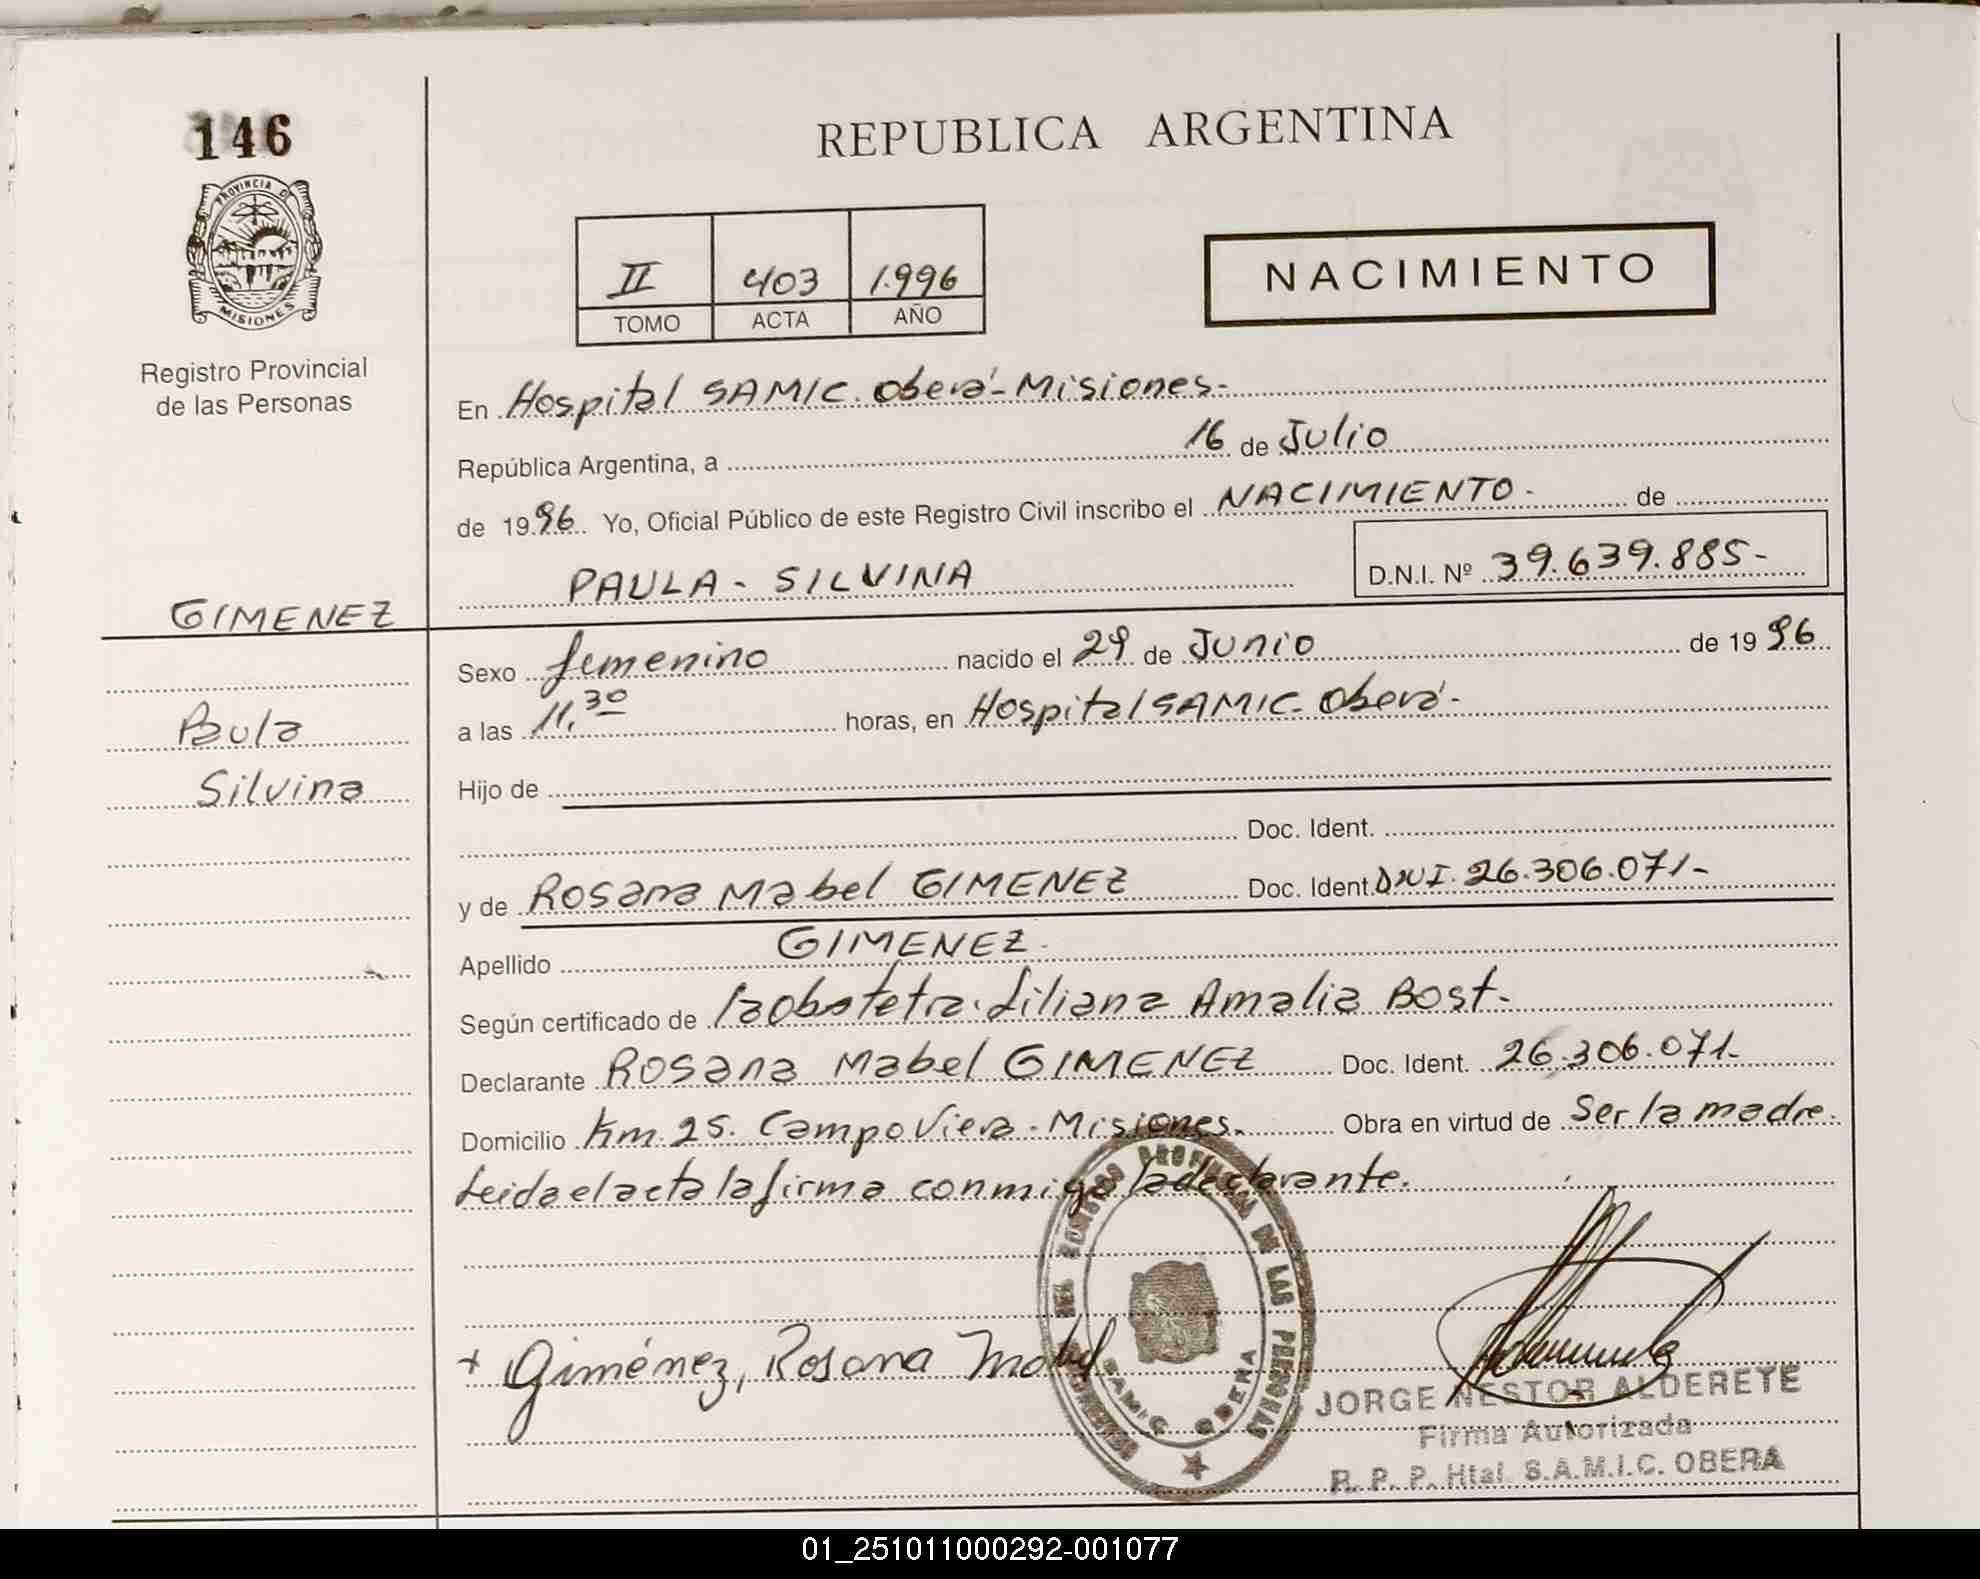 146
REPUBLICA ARGENTINA
PROVINCIA D
MISIONES
Registro Provincial
de las Personas
II 403 1.996
TOMO ACTA AÑO
NACIMIENTO
En Hospital SAMIC. Oberá - Misiones.-
República Argentina, a 16 de Julio
de 1996 Yo, Oficial Público de este Registro Civil inscribo el NACIMIENTO. de
PAULA - SILVINA D.N.I. Nº 39.639.885-
GIMENEZ
Paula
Silvina
Sexo femenino nacido el 29 de Junio de 1996
a las 11,30 horas, en Hospital SAMIC. Oberá.
Hijo de
Doc. Ident.
y de Rosana Mabel GIMENEZ Doc. Ident. DNI. 26.306.071-
Apellido GIMENEZ.
Según certificado de la obstetra. Liliana Amalia Bost.
Declarante Rosana Mabel GIMENEZ Doc. Ident. 26.306.071-
Domicilio Km. 25. Campo Viera - Misiones. Obra en virtud de Ser la madre.
Leida el acta la firma conmigo la declarante.
+ Giménez, Rosana Mabel
DEL REGISTRO PROVINCIAL DE LAS PERSONAS
SAMIC OBERA
JORGE NESTOR ALDERETE
Firma Autorizada
R. P. P. Htal. S.A.M.I.C. OBERA
01_251011000292-001077